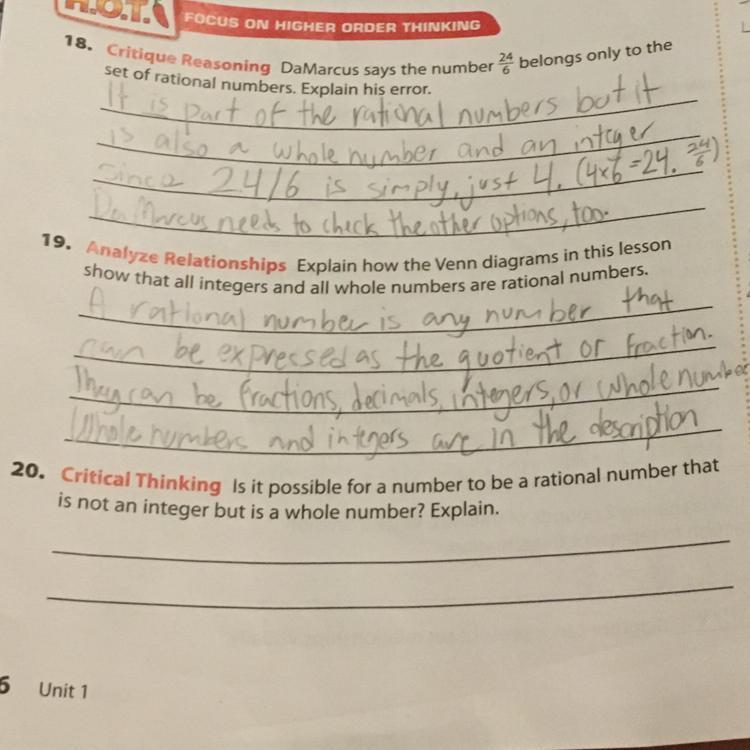 H.O.T.
FOCUS ON HIGHER ORDER THINKING
18. Critique Reasoning DaMarcus says the number 24/6 belongs only to the
set of rational numbers. Explain his error.
It is part of the rational numbers but it
is also a whole number and an integer
Since 24/6 is simply, just 4. (4x6=24. 24/6)
DaMarcus needs to check the other options, too.
19. Analyze Relationships Explain how the Venn diagrams in this lesson
show that all integers and all whole numbers are rational numbers.
A rational number is any number that
can be expressed as the quotient or fraction.
They can be fractions, decimals, integers, or whole number
Whole numbers and integers are in the description
20. Critical Thinking Is it possible for a number to be a rational number that
is not an integer but is a whole number? Explain.
6 Unit 1